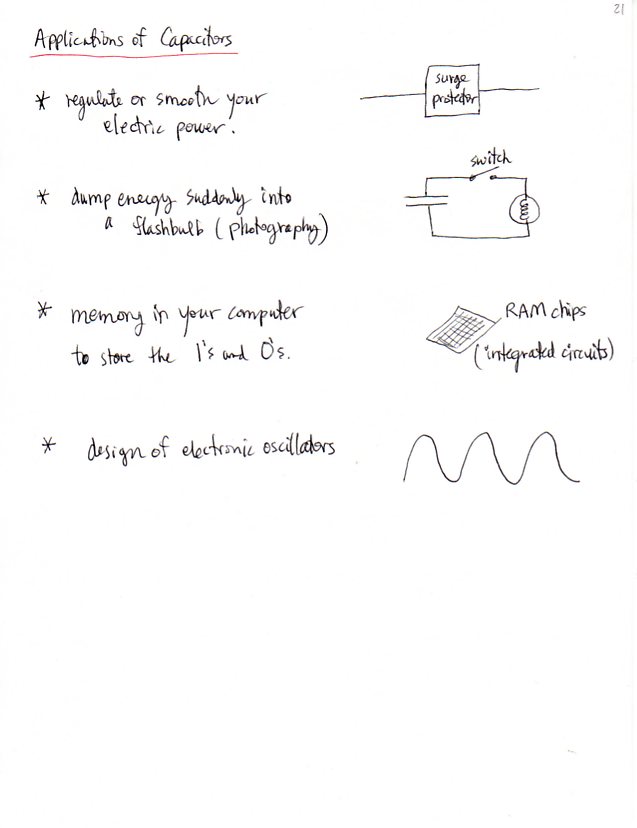 21
Applications of Capacitors
* regulate or smooth your
electric power.
surge
protector
* dump energy suddenly into
a flashbulb (photography)
switch
* memory in your computer
to store the 1's and 0's.
RAM chips
(integrated circuits)
* design of electronic oscillators